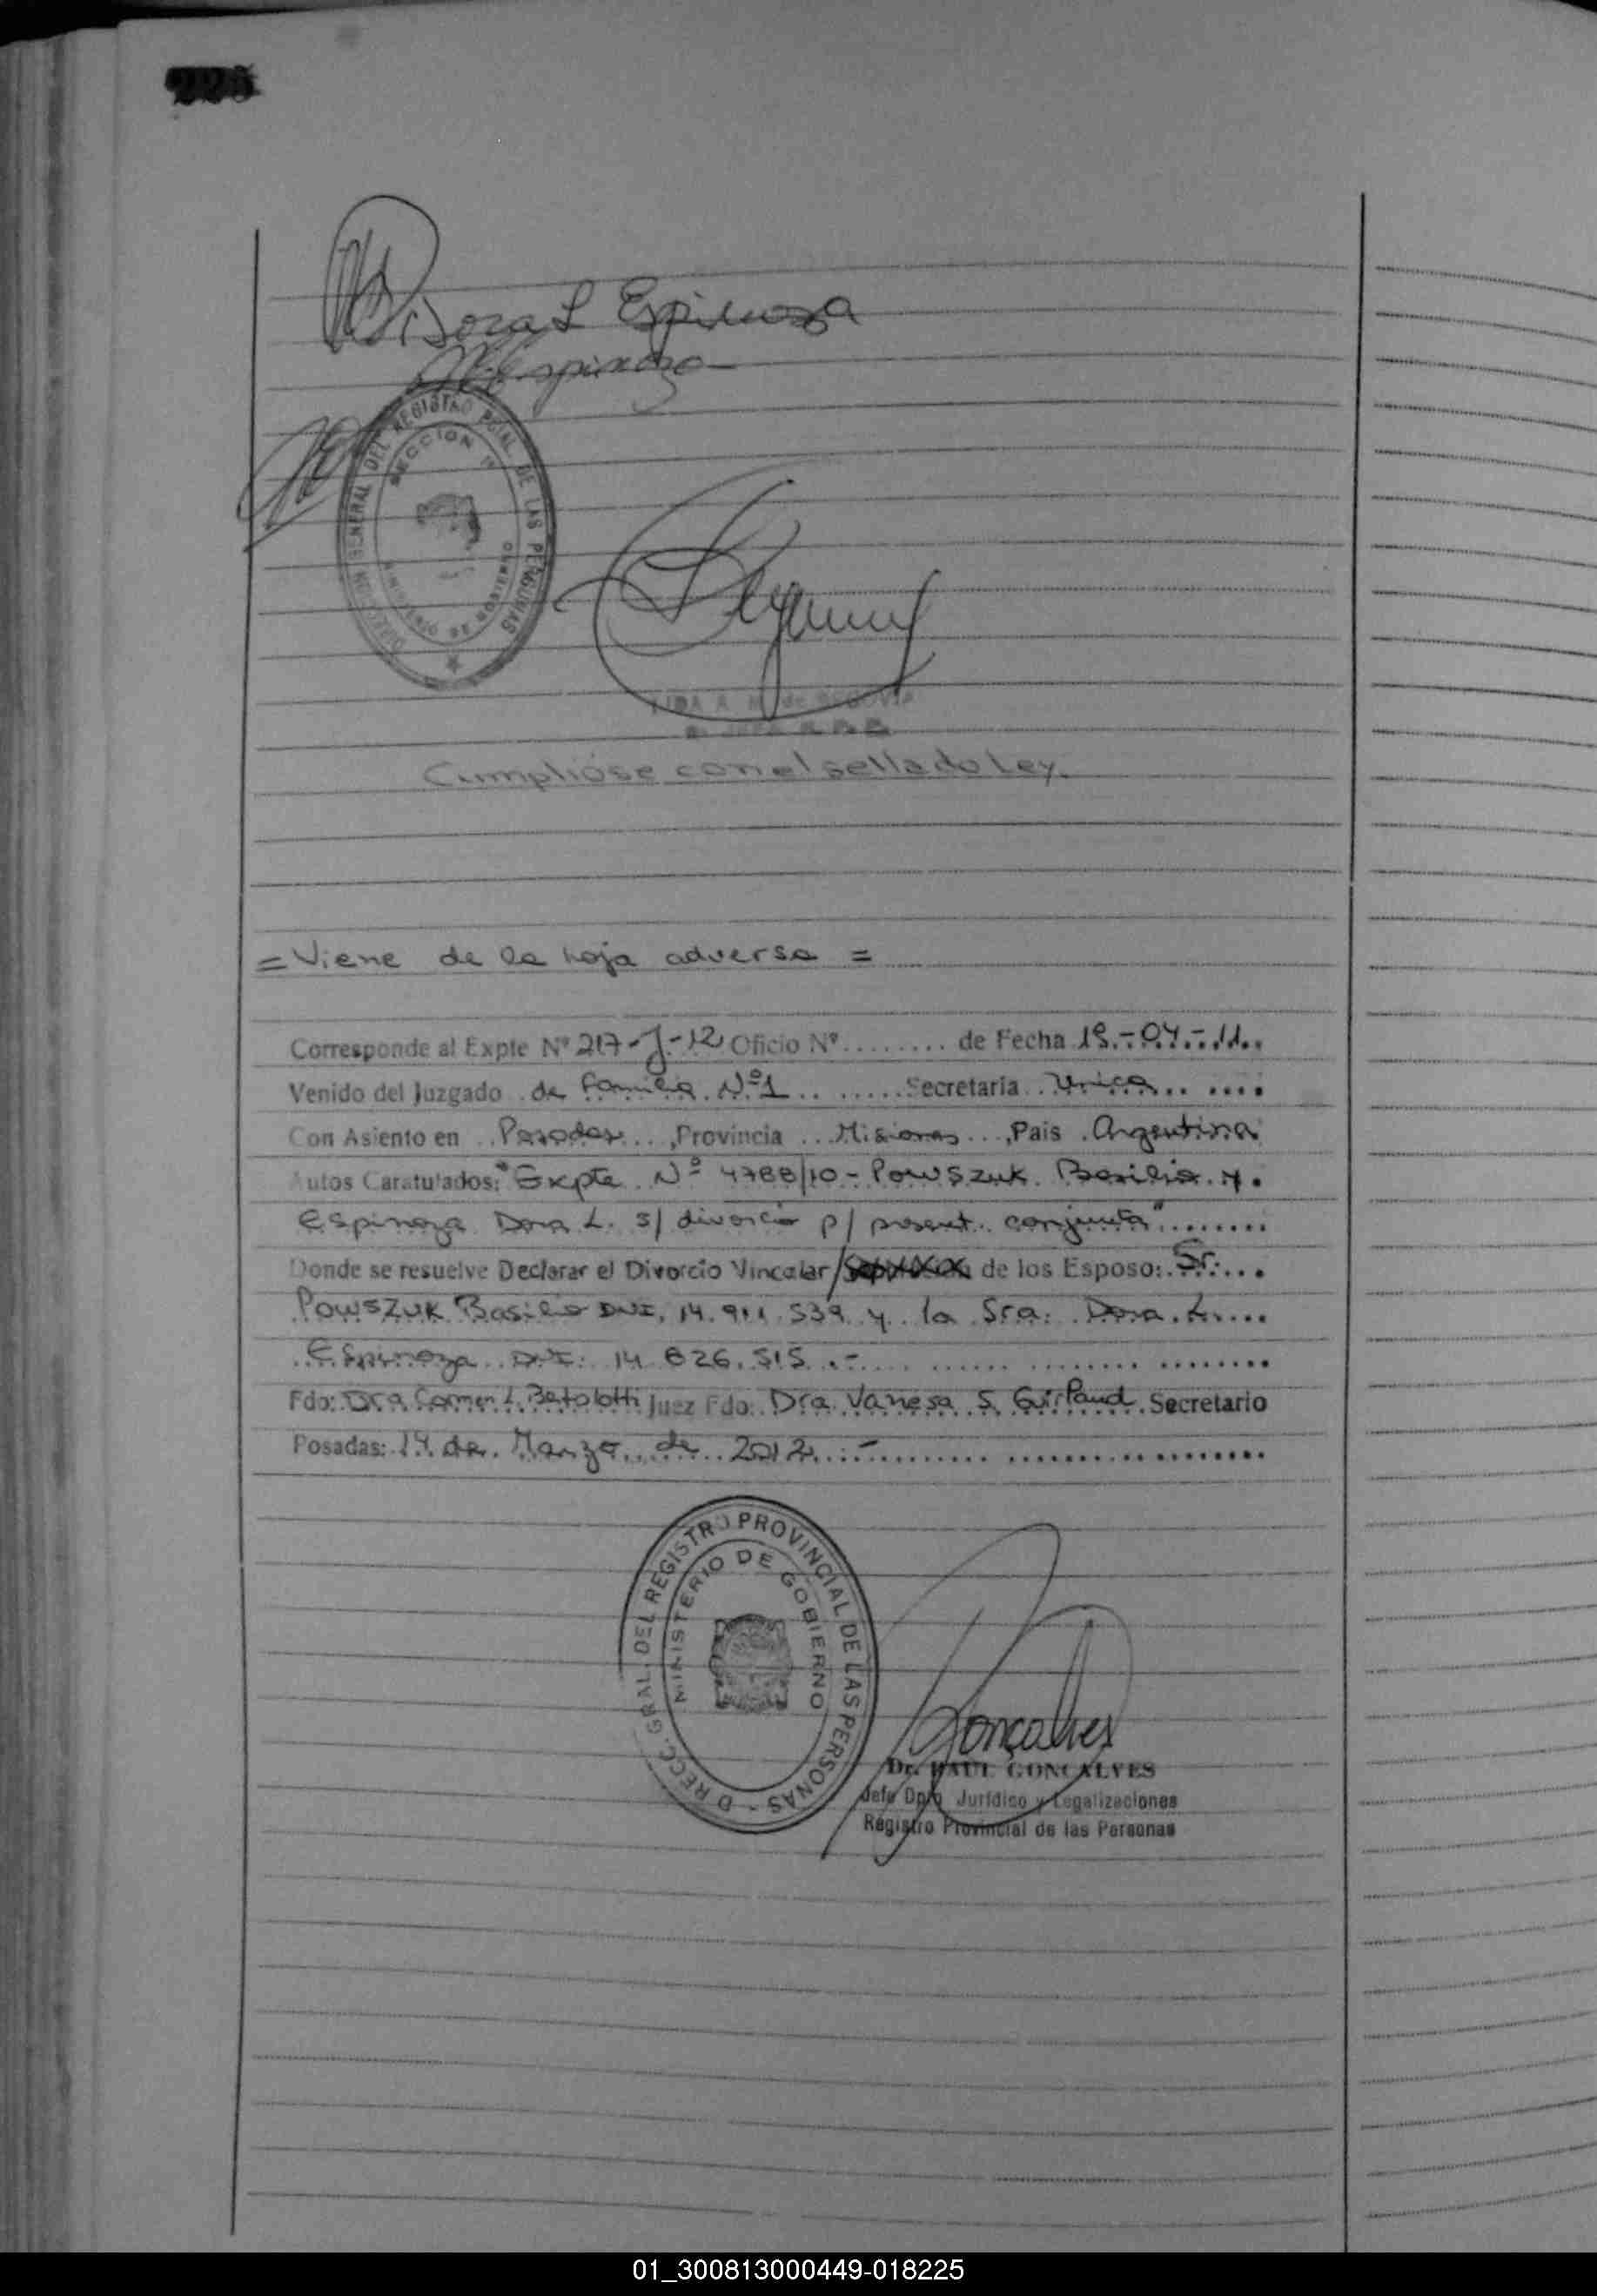 225
Dora L Espinoza
Espinoza
DIRECCION GENERAL DEL REGISTRO PCIAL DE LAS PERSONAS
SECCION 1ª
MINISTERIO DE GOBIERNO
LIDA A. M. de SEGOVIA
Cumplióse con el sellado Ley.
= Viene de la hoja adversa =
Corresponde al Expte Nº 217-J-12 Oficio Nº ........ de Fecha 19.-04.-.11..
Venido del Juzgado de Familia Nº 1 .. ......Secretaria .. Unica .. ....
Con Asiento en .. Posadas ..., Provincia ... Misiones ..., Pais . Argentina
Autos Caratulados: "Expte. Nº 4788/10 - Powszuk. Basilio. y.
Espinoza Dora L. s/ divorcio p/ present. conjunta" ........
Donde se resuelve Declarar el Divorcio Vincular / de los Esposo: Sr....
Powszuk Basilio DNI. 14.911.539 y la Sra. Dora. L.....
Espinoza DNI: 14.826.515 .-.... ...... ........ ........
Fdo: Dra Carmen L. Bertolotti Juez Fdo: Dra. Vanesa S. Secretario
Posadas: 14 de. Marzo de 2012 .:-............ ..................
DIRECC. GRAL. DEL REGISTRO PROVINCIAL DE LAS PERSONAS -
MINISTERIO DE GOBIERNO
Gonçalves
Dr. RAUL GONCALVES
Jefe Dpto Jurídico y Legalizaciones
Registro Provincial de las Personas
01_300813000449-018225